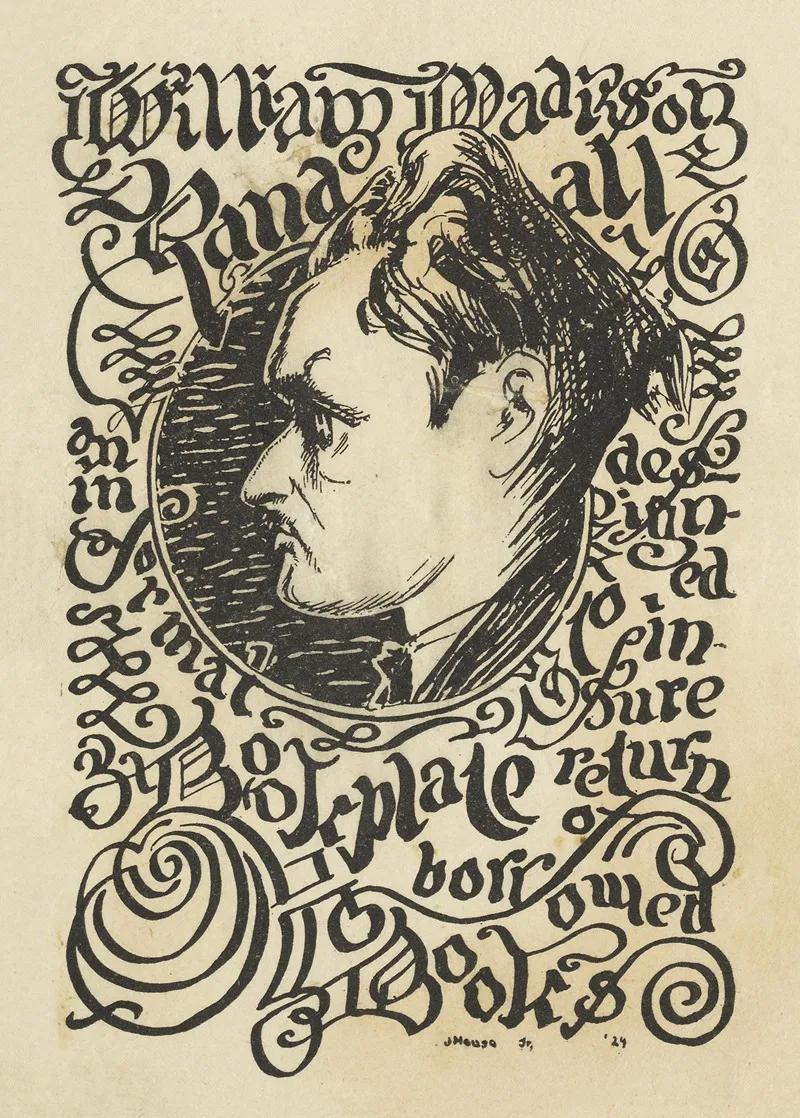 William Madison
Randall
an
in
formal
Bookplate
designed
to in-
sure
return
of
borrowed
Books
JHouse Jr, '24